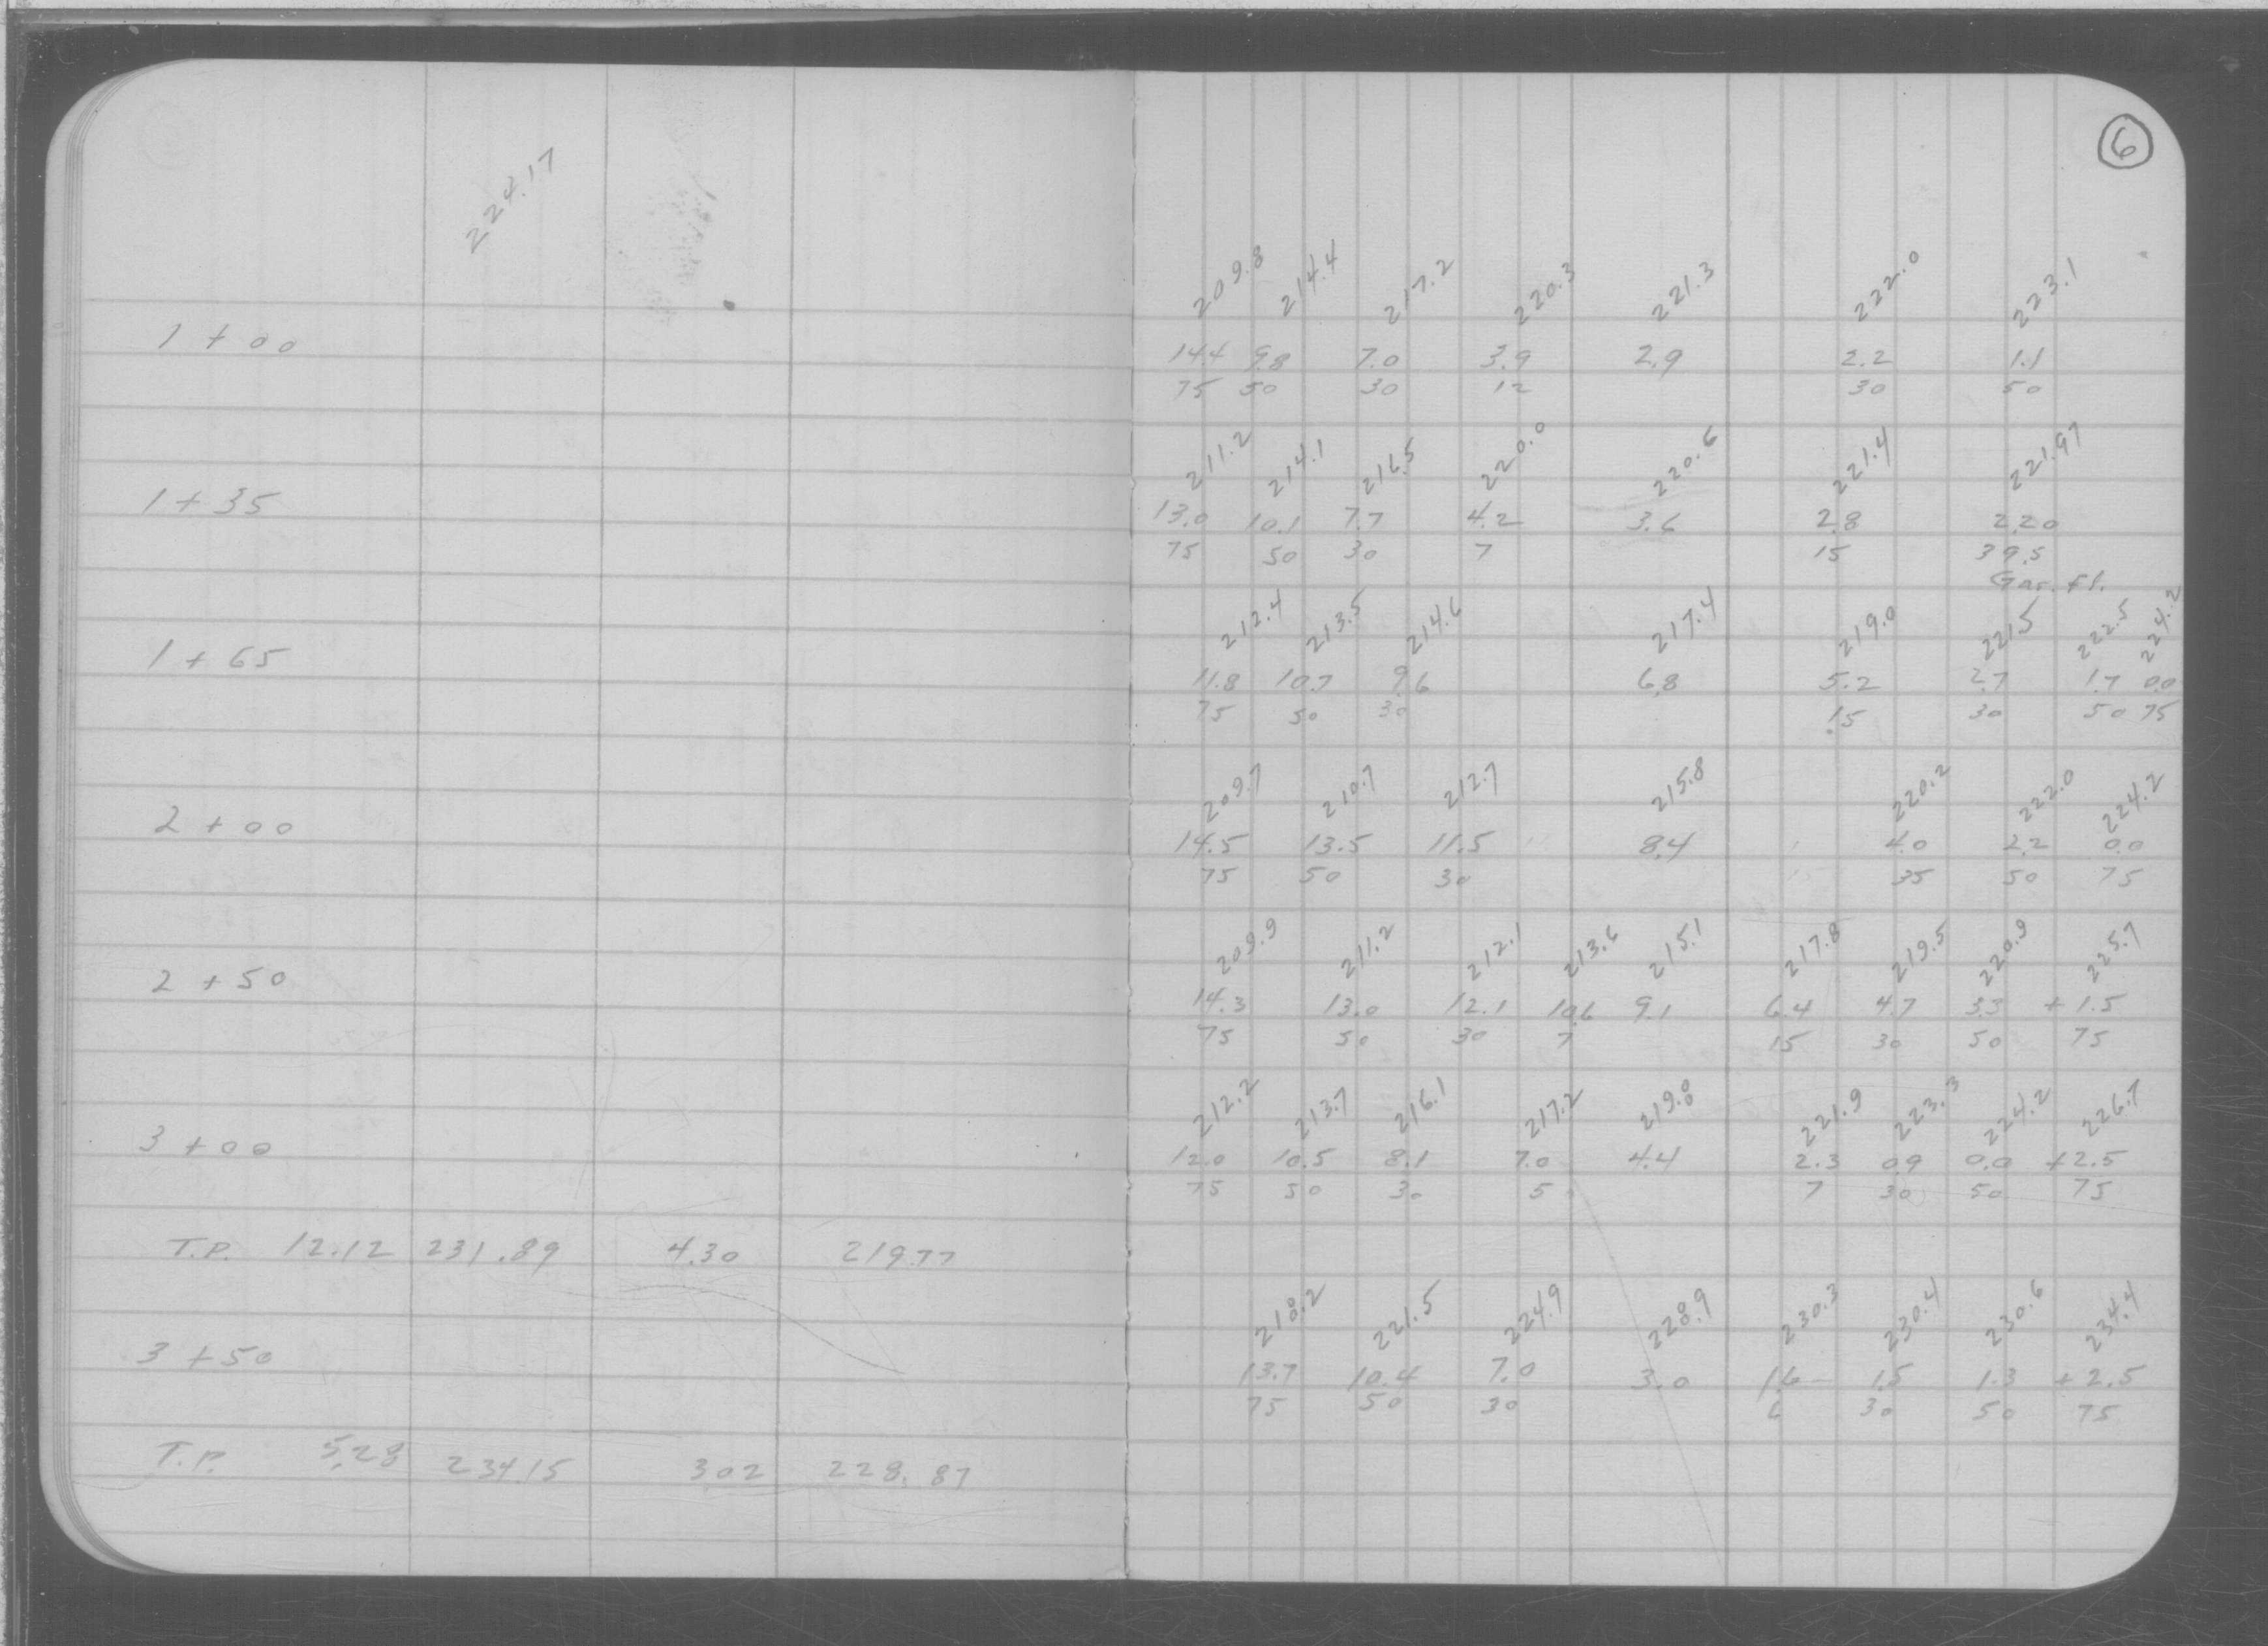 6
224.17
209.8 214.4 217.2 220.3 221.3 222.0 223.1
1 + 00 14.4 9.8 7.0 3.9 2.9 2.2 1.1
75 50 30 12 30 50
211.2 214.1 216.5 220.0 220.6 221.4 221.97
1 + 35 13.0 10.1 7.7 4.2 3.6 2.8 2.20
75 50 30 7 15 39.5
Gar. fl.
212.4 213.5 214.6 217.4 219.0 221.5 222.5 224.2
1 + 65 11.8 10.7 9.6 6.8 5.2 2.7 1.7 0.0
75 50 30 15 30 50 75
209.7 210.7 212.7 215.8 220.2 222.0 224.2
2 + 00 14.5 13.5 11.5 8.4 4.0 2.2 0.0
75 50 30 35 50 75
209.9 211.2 212.1 213.6 215.1 217.8 219.5 220.9 225.7
2 + 50 14.3 13.0 12.1 10.6 9.1 6.4 4.7 3.3 + 1.5
75 50 30 7 15 30 50 75
212.2 213.7 216.1 217.2 219.8 221.9 223.3 224.2 226.7
3 + 00 12.0 10.5 8.1 7.0 4.4 2.3 0.9 0.0 + 2.5
75 50 30 5 7 30 50 75
T.P. 12.12 231.89 4.30 219.77
218.2 221.5 224.9 228.9 230.3 230.4 230.6 234.4
3 + 50 13.7 10.4 7.0 3.0 1.6 1.5 1.3 + 2.5
75 50 30 6 30 50 75
T.P. 5.28 234.15 3.02 228.87